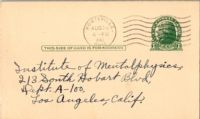 THIS SIDE OF CARD IS FOR ADDRESS
Institute of Mentalphysics,
213 South Hobart Blvd,
Dept. A-100,
Los Angeles, Calif.